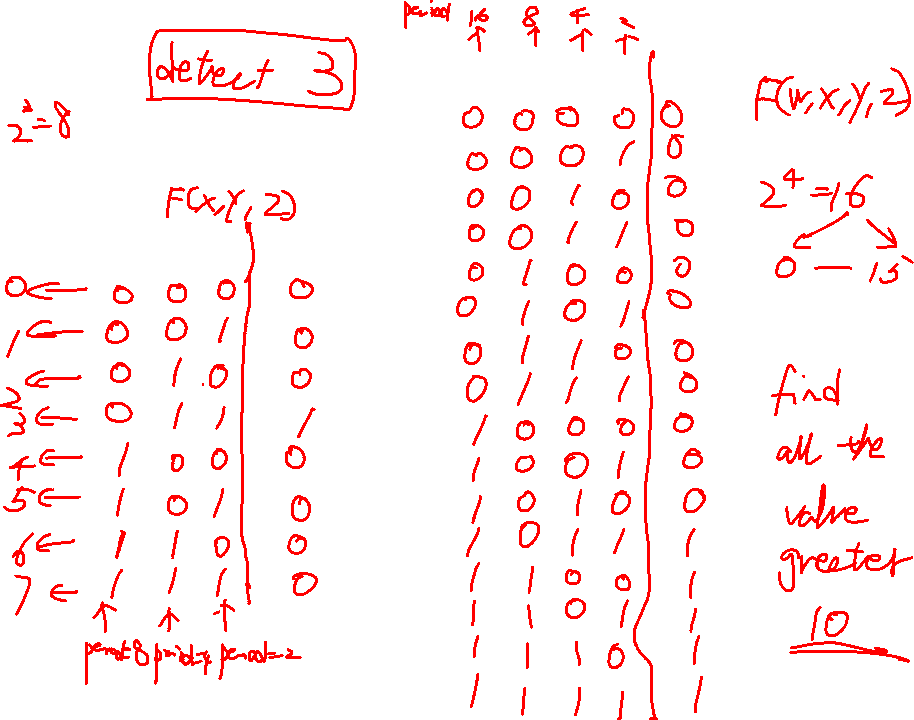 detect 3
2³=8
F(x,Y,Z)
0 ← 0 0 0 0
1 ← 0 0 1 0
2 ← 0 1 0 0
3 ← 0 1 1 1
4 ← 1 0 0 0
5 ← 1 0 1 0
6 ← 1 1 0 0
7 ← 1 1 1 0
↑ ↑ ↑
period=8 period=4 period=2
period 16 8 4 2
↑ ↑ ↑ ↑
0 0 0 0 0
0 0 0 1 0
0 0 1 0 0
0 0 1 1 0
0 1 0 0 0
0 1 0 1 0
0 1 1 0 0
0 1 1 1 0
1 0 0 0 0
1 0 0 1 0
1 0 1 0 0
1 0 1 1 1
1 1 0 0 1
1 1 0 1 1
1 1 1 0 1
1 1 1 1 1
F(w,x,Y,Z)
2⁴=16
0 — 15
find
all the
value
greeter
10